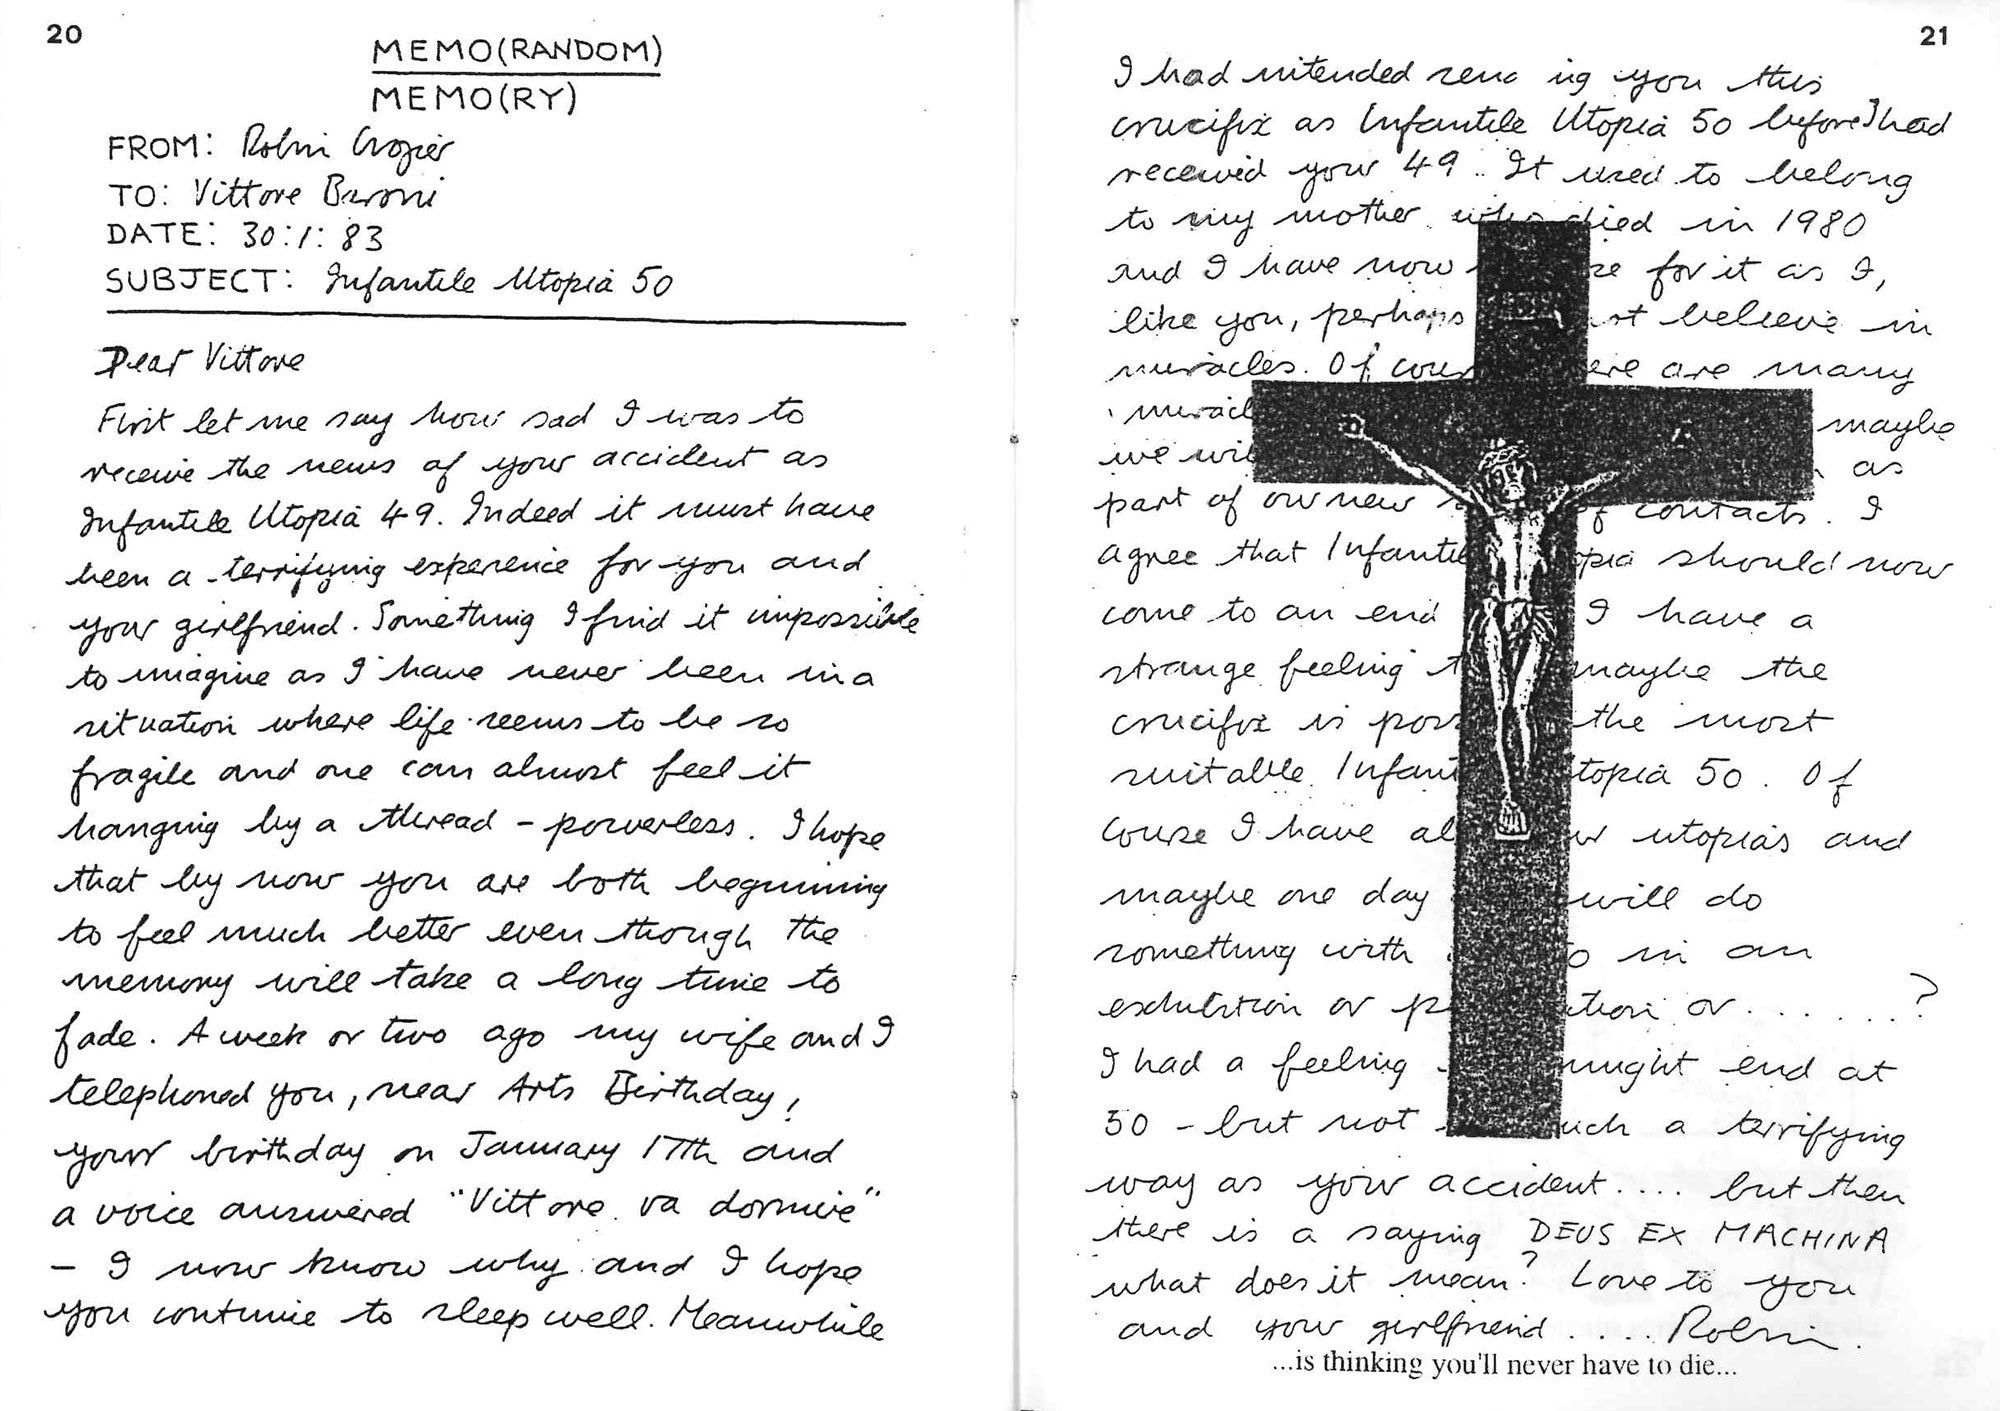 20
MEMO(RANDOM)
MEMO(RY)
FROM: Robin Crozier
TO: Vittore Baroni
DATE: 30:1:83
SUBJECT: Infantile Utopia 50
Dear Vittore
First let me say how sad I was to
receive the news of your accident as
Infantile Utopia 49. Indeed it must have
been a terrifying experience for you and
your girlfriend. Something I find it impossible
to imagine as I have never been in a
situation where life seems to be so
fragile and one can almost feel it
hanging by a thread - powerless. I hope
that by now you are both beginning
to feel much better even though the
memory will take a long time to
fade. A week or two ago my wife and I
telephoned you, near Arts Birthday,
your birthday on January 17th and
a voice answered "Vittore va dormire"
- I now know why and I hope
you continue to sleep well. Meanwhile
21
I had intended sending you this
crucifix as Infantile Utopia 50 before I had
received your 49. It used to belong
to my mother who died in 1980
and I have now for it as I,
like you, perhaps believe in
miracles. Of are many
maybe
we as
part of our new of contacts. I
agree that should now
come to an end I have a
strange feeling maybe the
crucifix is the most
suitable 50. Of
course I have utopias and
maybe one day will do
something with in an
exhibition or or.......?
I had a feeling might end at
50 - but not a terrifying
way as your accident.... but then
there is a saying DEUS EX MACHINA
what does it mean? Love to you
and your girlfriend .... Robin.
...is thinking you'll never have to die...